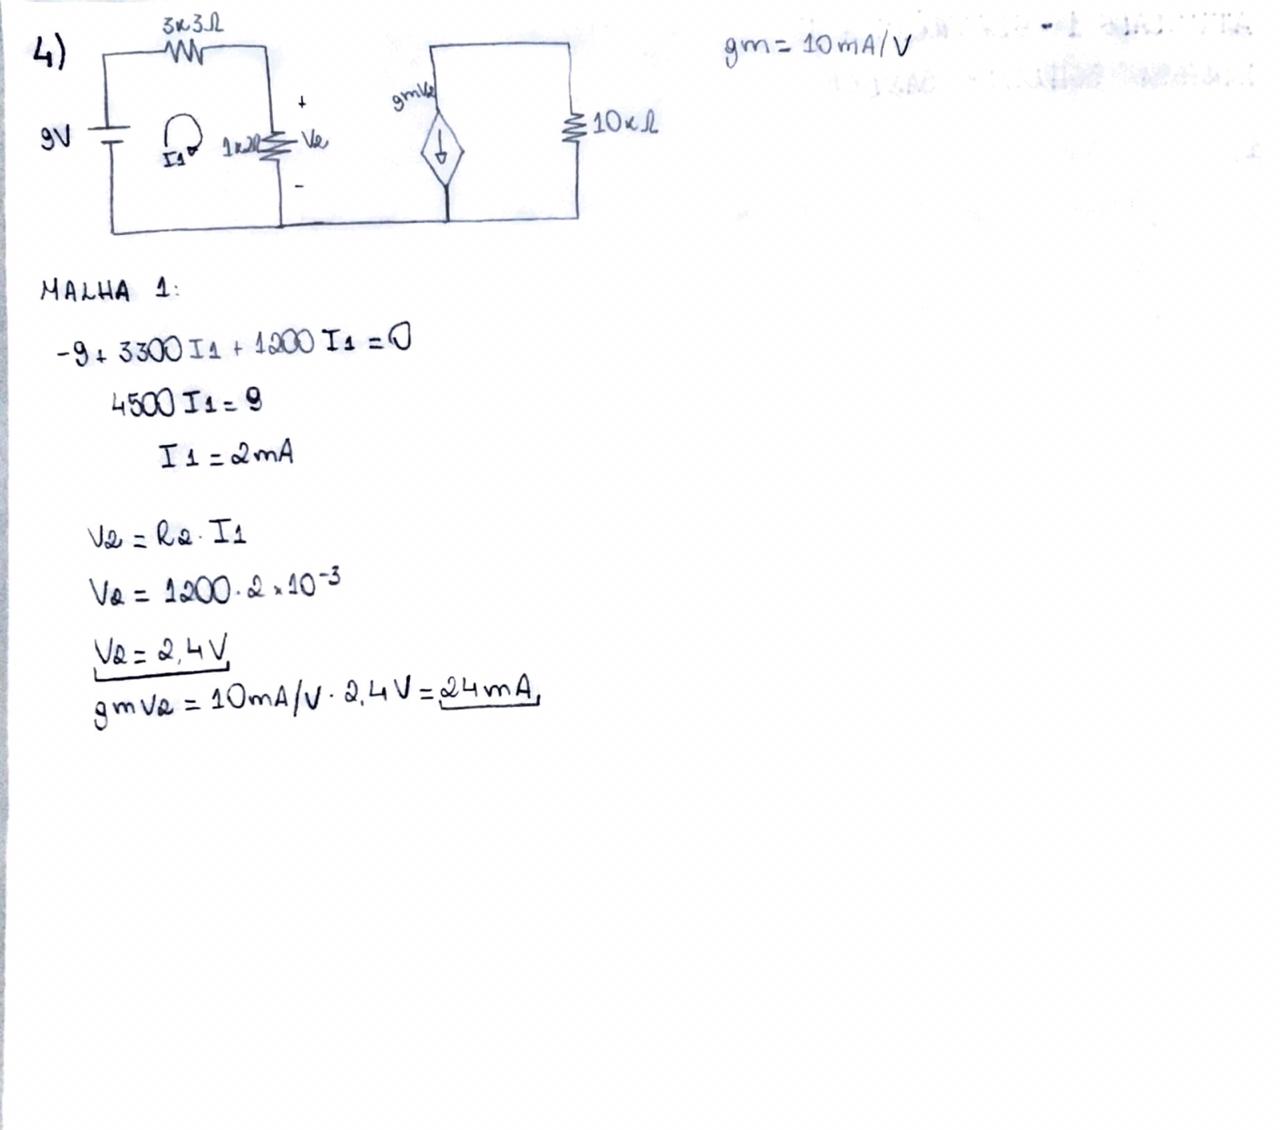 4)
3k3Ω
9V
I1
1k2Ω
+
V2
-
gmV2
10kΩ
gm = 10mA/V
MALHA 1:
-9 + 3300 I1 + 1200 I1 = 0
4500 I1 = 9
I1 = 2mA
V2 = R2 . I1
V2 = 1200 . 2 x 10⁻³
V2 = 2,4V
gmV2 = 10mA/V . 2,4V = 24mA